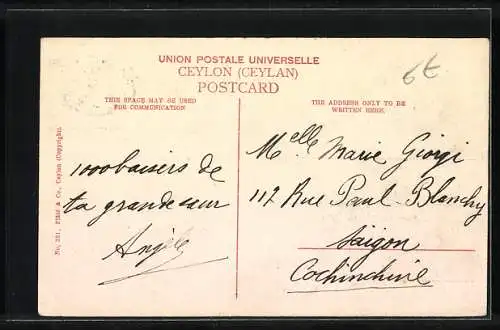 UNION POSTALE UNIVERSELLE
CEYLON (CEYLAN)
POSTCARD
6€
THIS SPACE MAY BE USED
FOR COMMUNICATION
THE ADDRESS ONLY TO BE
WRITTEN HERE.
No. 251. Plâté & Co., Ceylon (Copyright).
1000 baisers de
ta grande sœur
Angèle
Melle Marie Giorgi
117 Rue Paul-Blanchy
Saigon
Cochinchine